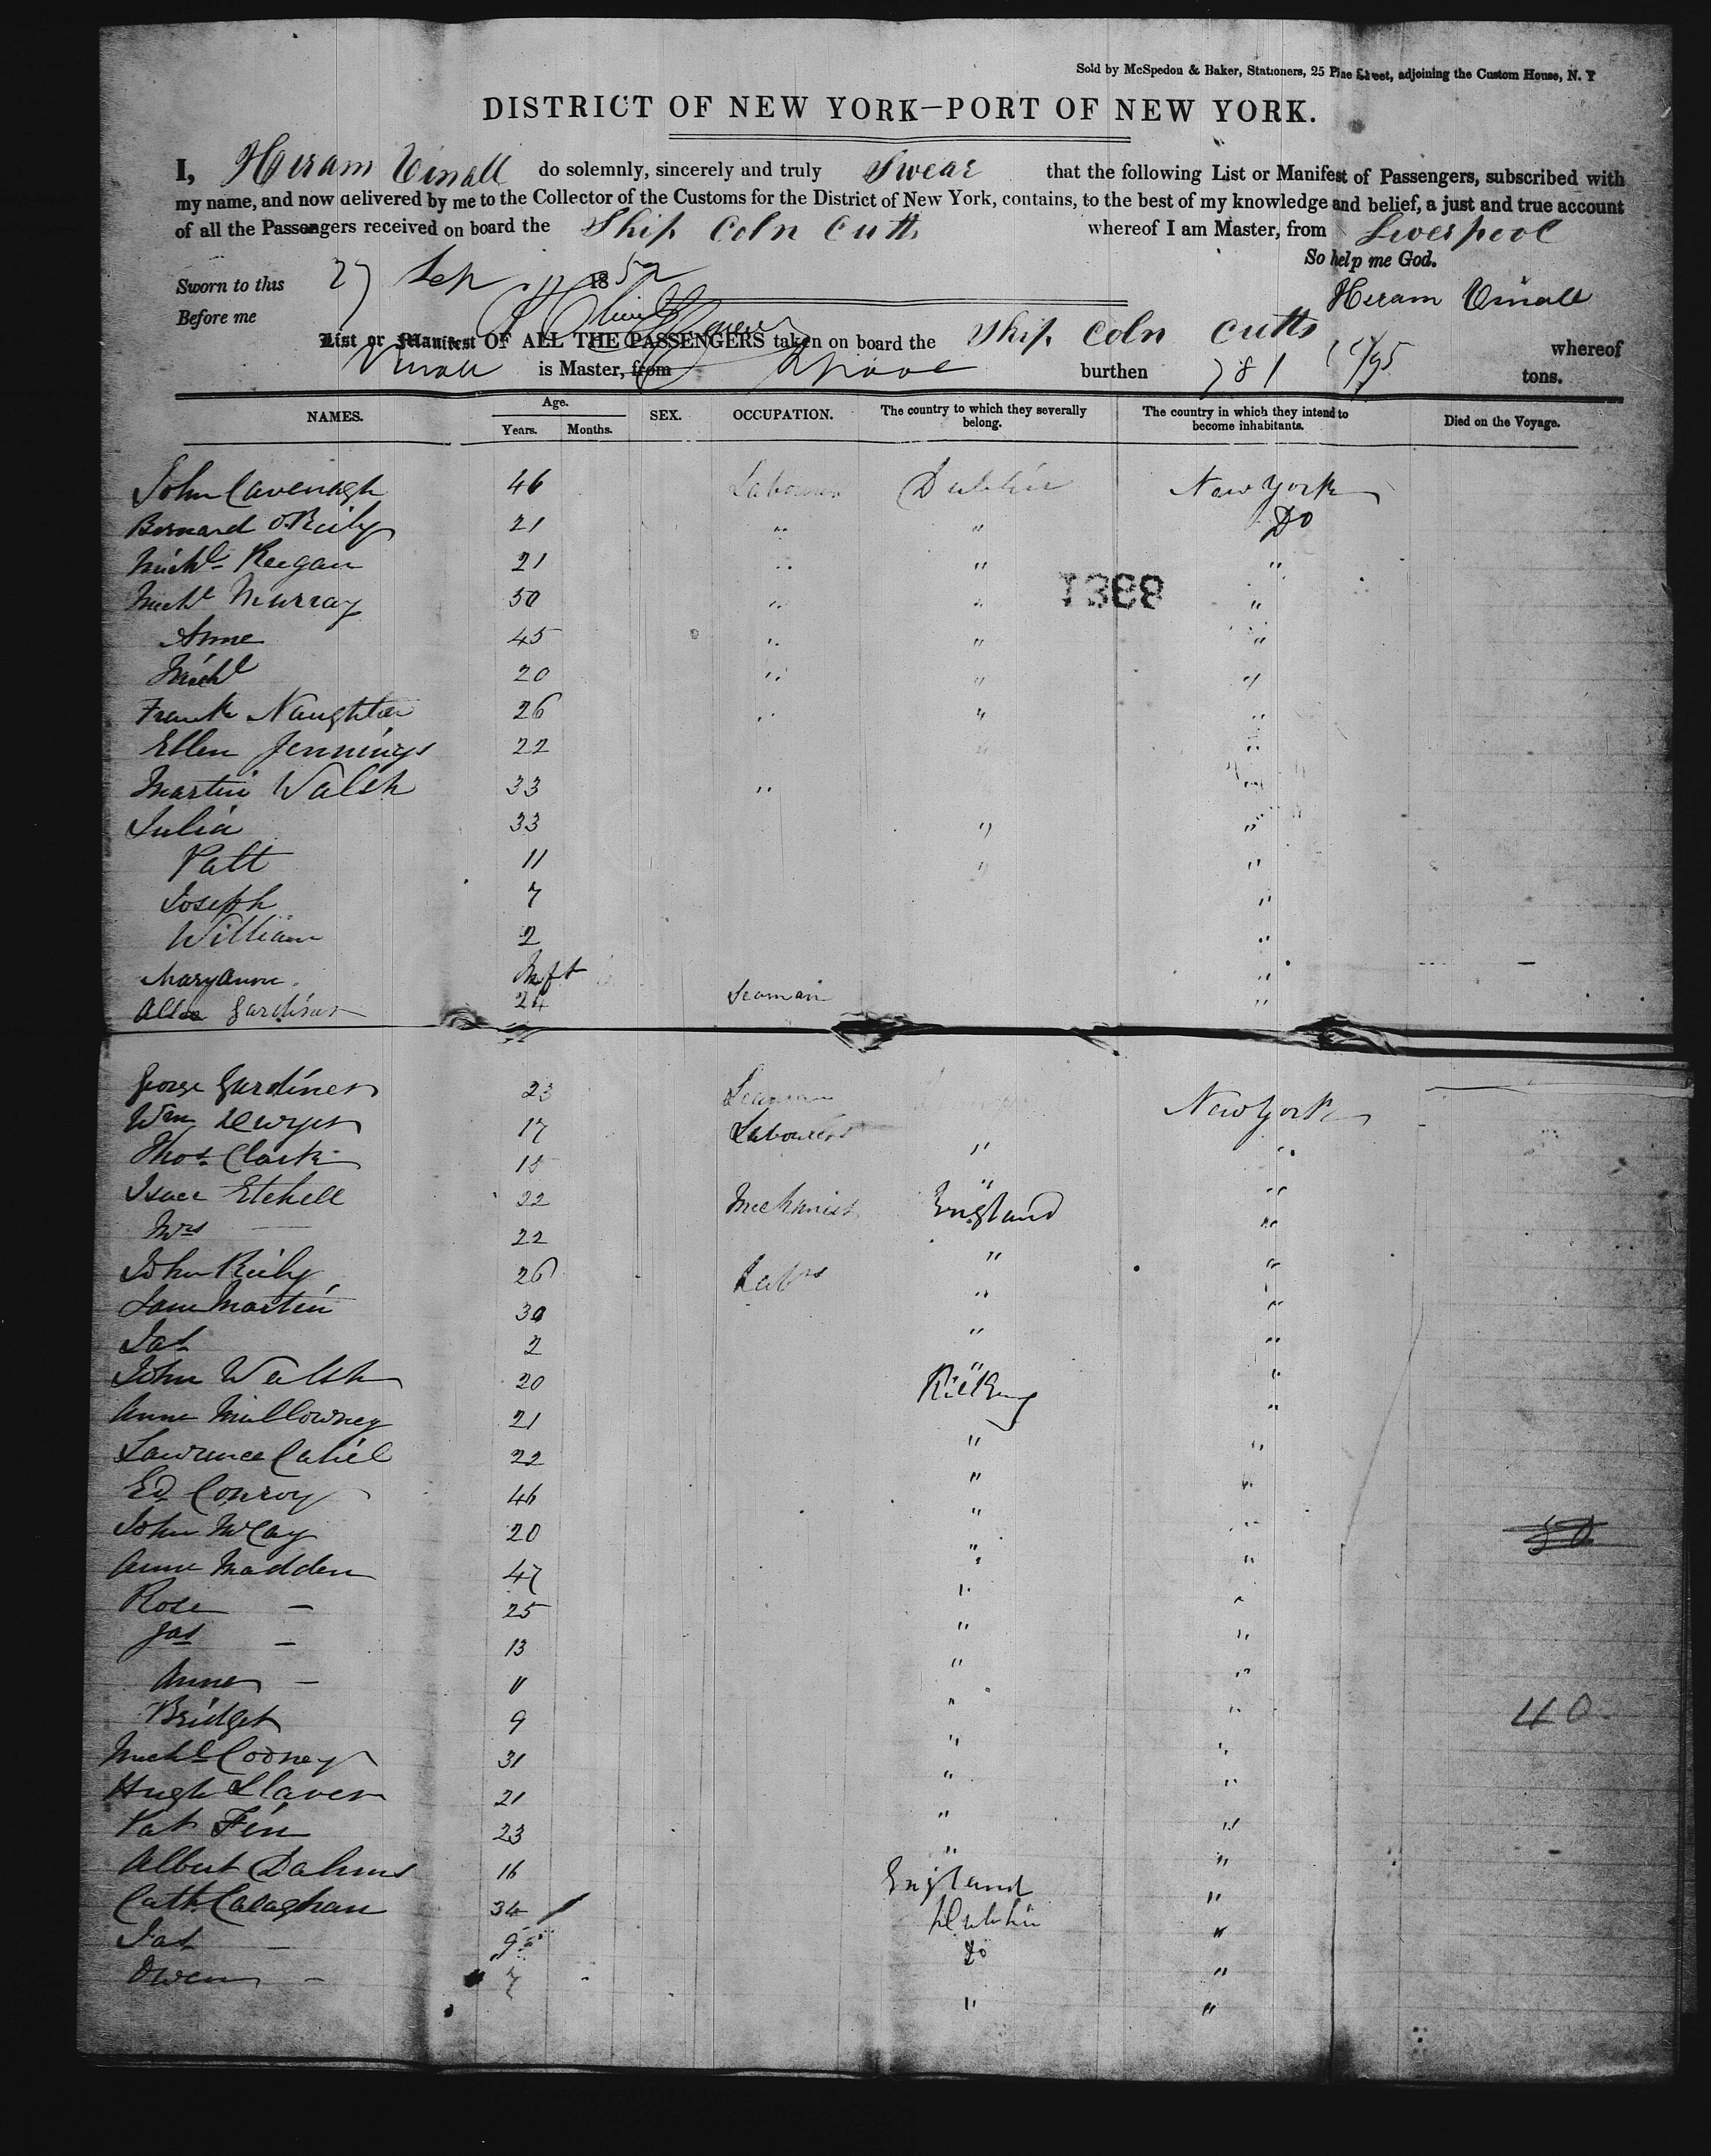 Sold by McSpedon & Baker, Stationers, 25 Pine Street, adjoining the Custom House, N. Y
DISTRICT OF NEW YORK—PORT OF NEW YORK.
I, Hiram Vinall do solemnly, sincerely and truly Swear that the following List or Manifest of Passengers, subscribed with
my name, and now delivered by me to the Collector of the Customs for the District of New York, contains, to the best of my knowledge and belief, a just and true account
of all the Passengers received on board the Ship Coln Cutts whereof I am Master, from Liverpool
So help me God.
Sworn to this 27 Sep 1852 Hiram Vinall
Before me
List or Manifest OF ALL THE PASSENGERS taken on board the Ship Coln Cutts whereof
Vinall is Master, from Lpool burthen 781 /95 tons.
NAMES. Age. Years. Months. SEX. OCCUPATION. The country to which they severally belong. The country in which they intend to become inhabitants. Died on the Voyage.
John Cavenagh 46 Labourer Dublin New York
Bernard O'Reily 21 " " Do
Michl Reegan 21 " " "
1368
Michl Murray 50 " " "
Anne 45 " " "
Michl 20 " " "
Frank Naughton 26 " " "
Ellen Jennings 22 " "
Martin Walsh 33 " "
Julia 33 " "
Patt 11 " "
Joseph 7 "
William 2 "
Maryanne Inft "
Gardiner 24 Seaman "
George Gardiner 23 Seaman New York
Wm Dwyer 17 Labourer " "
Thos. Clark 18 " "
Isaac Etchell 22 Mechanics England "
Mrs — 22 " "
John Reily 26 Labrs " "
Jane Martin 30 " "
Jas 2 " "
John Walsh 20 Kilkeny "
Anne Mullowney 21 " "
Lawrence Cahil 22 " "
Ed Conroy 46 " "
John McCay 20 " "
Anne Madden 47 " "
Rose — 25 " "
Jas — 13 " "
Anne — 11 " "
Bridget 9 " " 40
Michl Cooney 31 " "
Hugh Slaven 21 " "
Pat Finn 23 " "
Albert Dahms 16 England "
Cath. Calaghan 34 Dublin "
Jas — 9 Do "
Owen — 7 " "